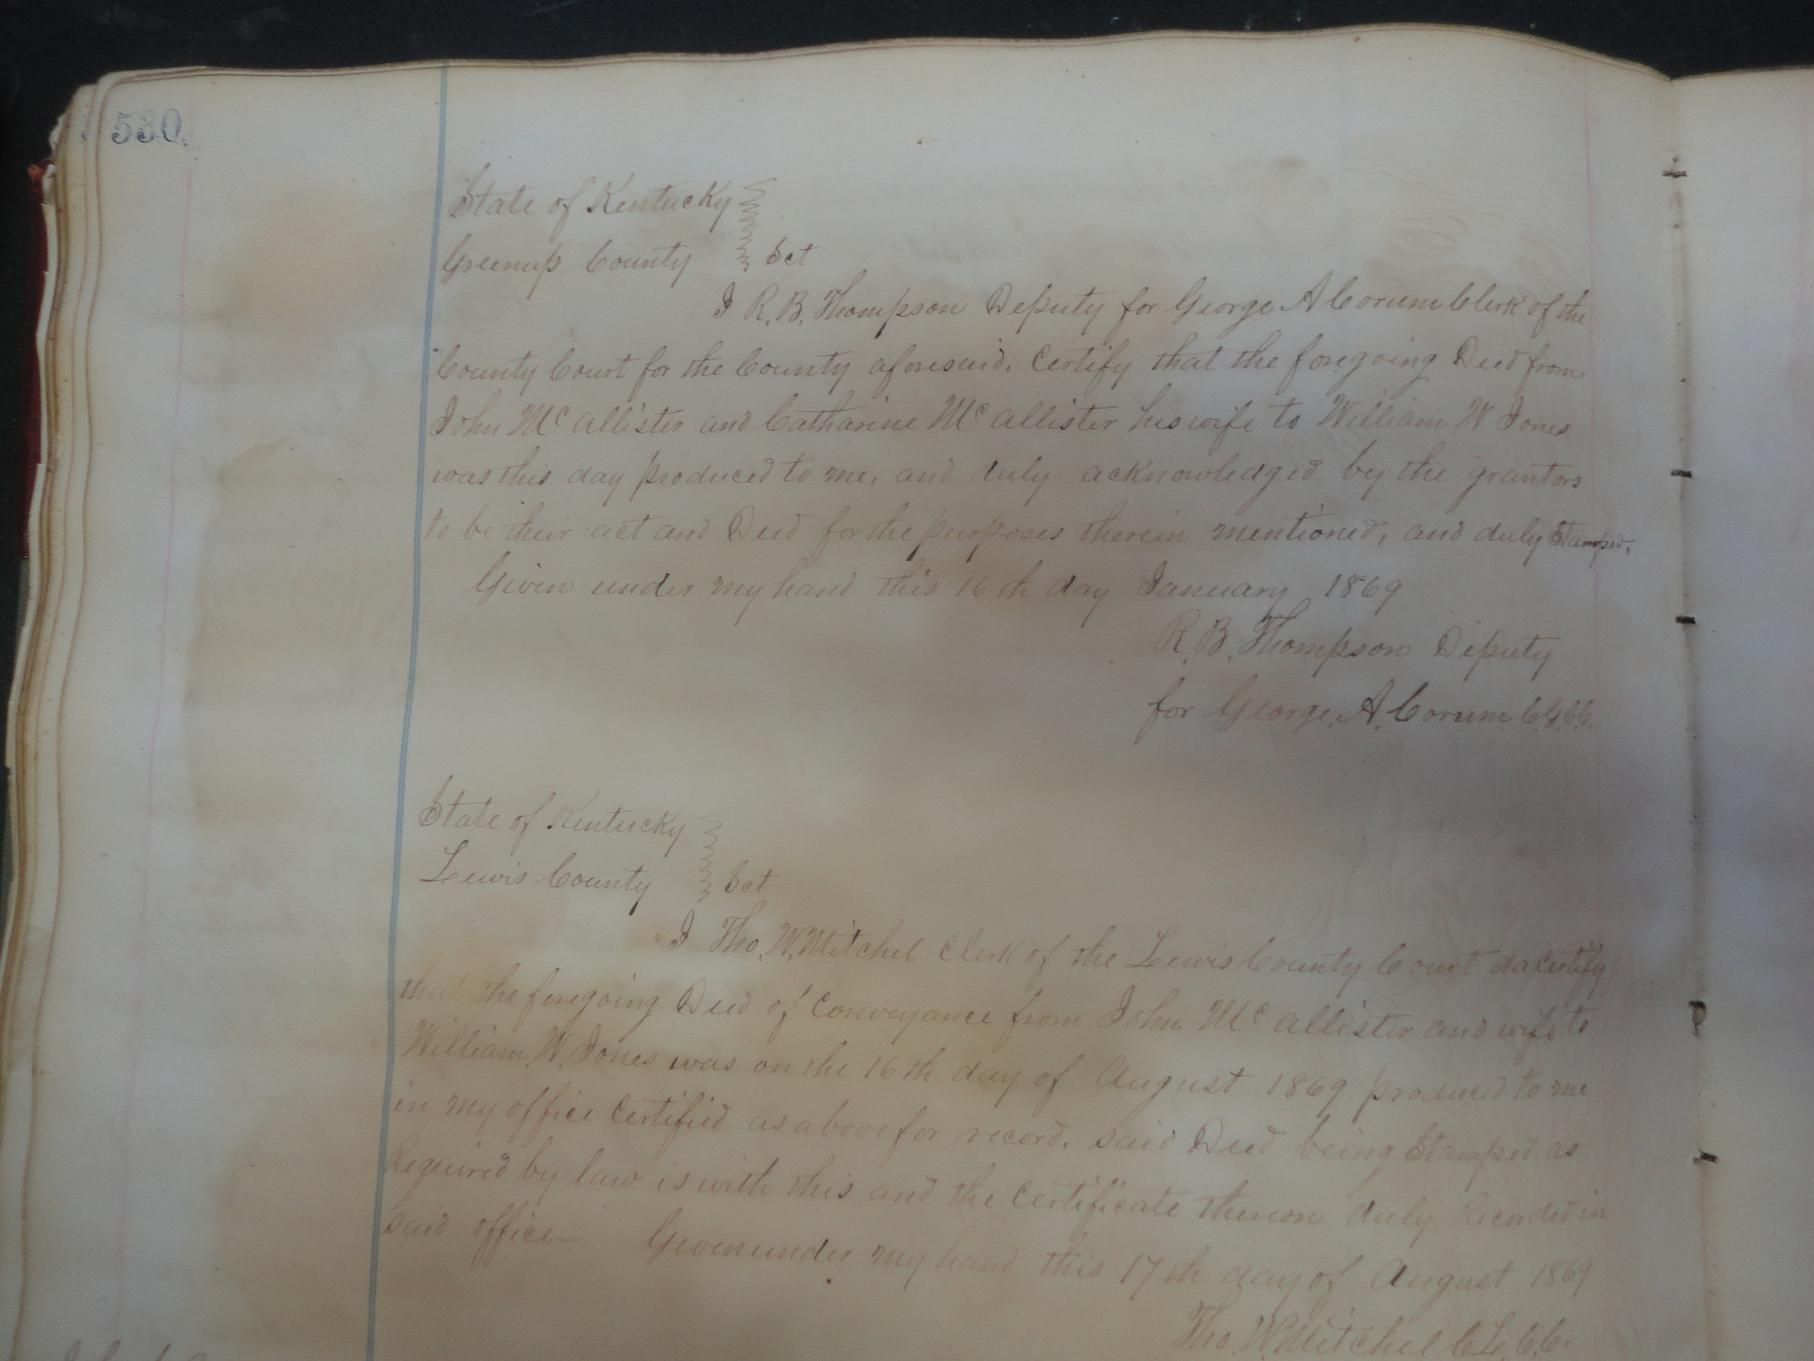 530.
State of Kentucky
Greenup County Sct
I R. B. Thompson Deputy for George A Corum Clerk of the
County Court for the County aforesaid. Certify that the foregoing Deed from
John McAllister and Catharine McAllister his wife to William W Jones
was this day produced to me, and duly acknowledged by the grantors
to be their act and Deed for the purposes therein mentioned, and duly Stamped.
Given under my hand this 16th day January 1869
R. B. Thompson Deputy
for George. A. Corum C.G.C.C.
State of Kentucky
Lewis County Sct
I Tho. W. Mitchel Clerk of the Lewis County Court do certify
that the foregoing Deed of Conveyance from John McAllister and wife to
William. W. Jones was on the 16th day of August 1869 produced to me
in my office Certified as above for record. Said Deed being Stamped as
Required by law is with this and the Certificate thereon duly Recorded in
said office— Given under my hand this 17th day of August 1869
Tho. W. Mitchel C.L.C.C.